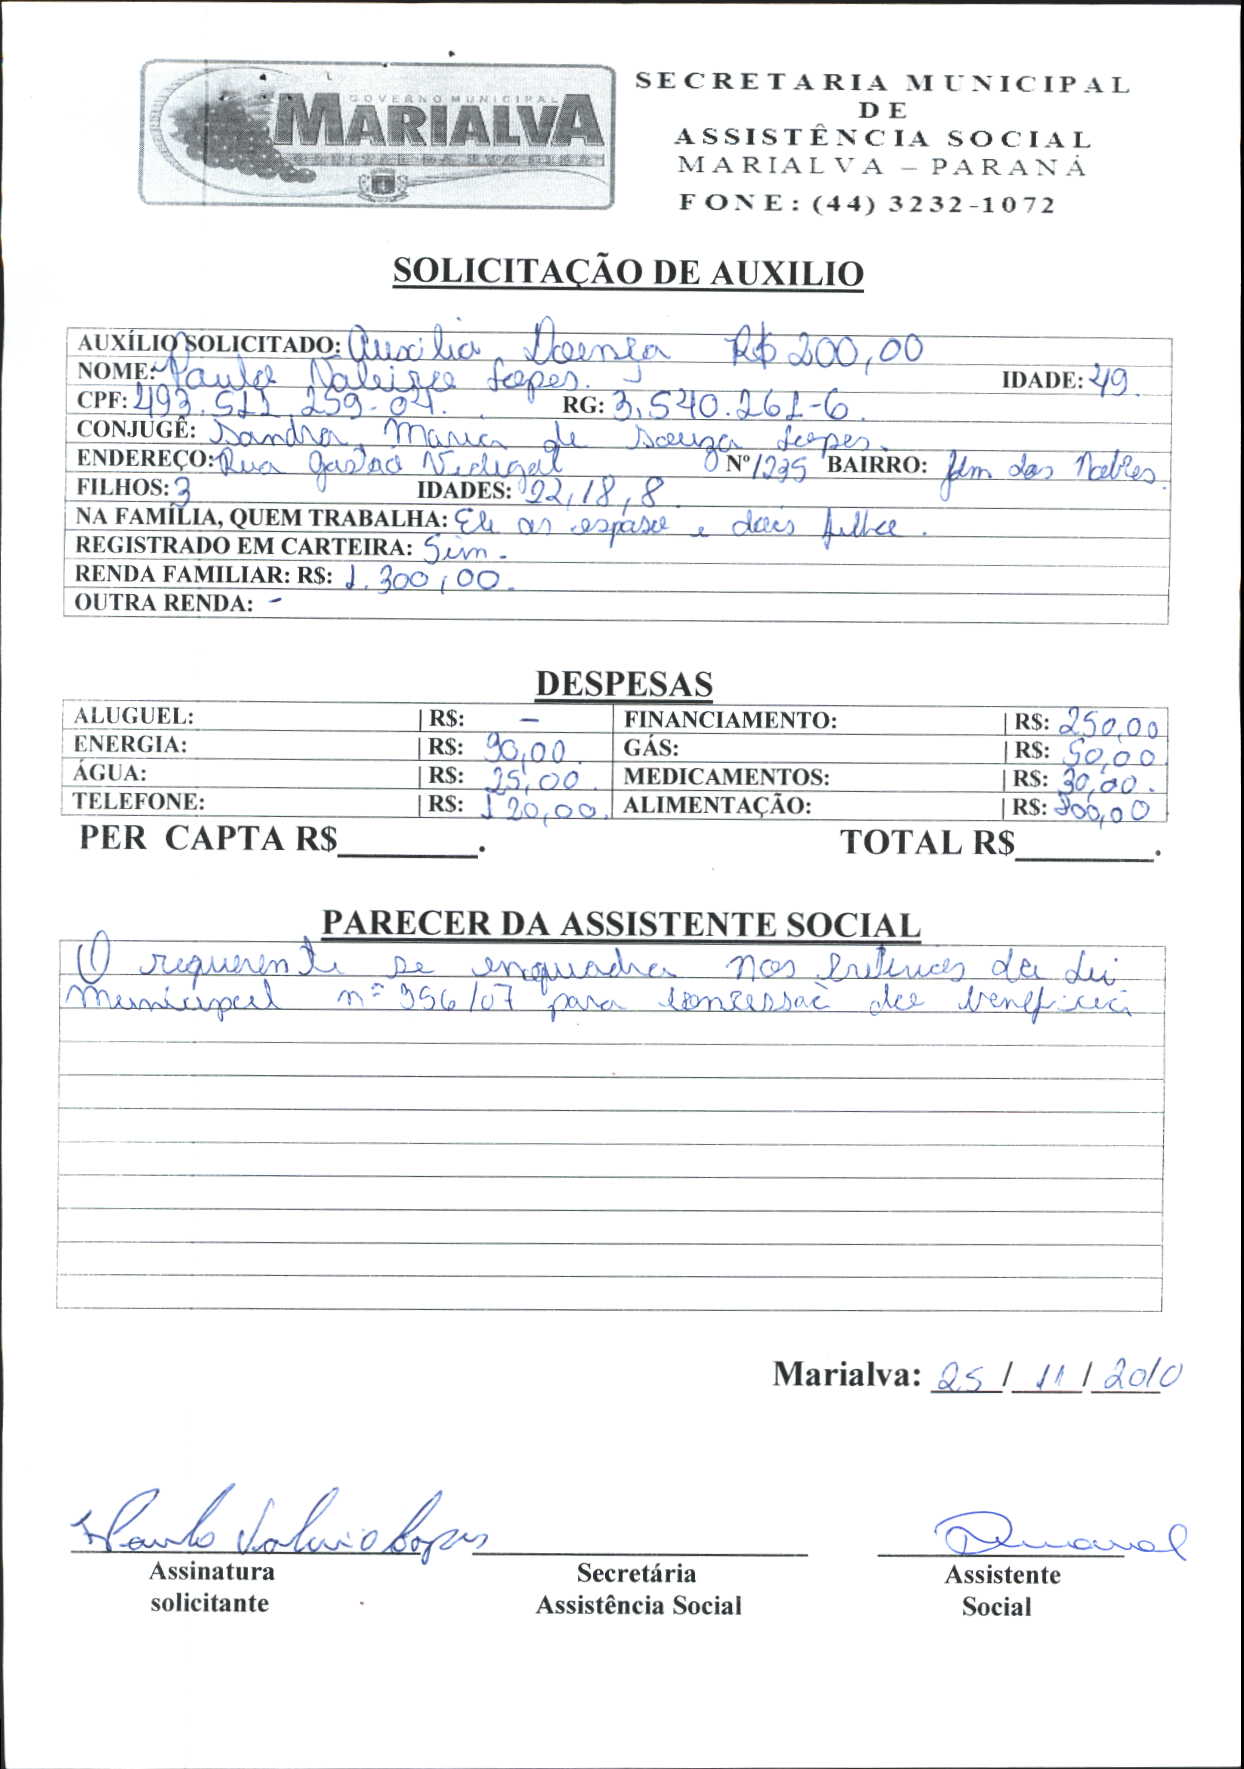 GOVERNO MUNICIPAL
MARIALVA
CAPITAL DA UVA FINA
SECRETARIA MUNICIPAL
DE
ASSISTÊNCIA SOCIAL
MARIALVA – PARANÁ
FONE: (44) 3232-1072
SOLICITAÇÃO DE AUXILIO
AUXÍLIO SOLICITADO: Auxilio Doença R$ 200,00
NOME: Paulo Valério Lopes. IDADE: 49.
CPF: 493.511.259-04. RG: 3.540.261-6.
CONJUGÊ: Sandra Maria de Souza Lopes.
ENDEREÇO: Rua Gastão Vidigal Nº 1235 BAIRRO: Jdm dos Nobres.
FILHOS: 3 IDADES: 22, 18, 8
NA FAMÍLIA, QUEM TRABALHA: Ele as esposa e dois filho.
REGISTRADO EM CARTEIRA: Sim.
RENDA FAMILIAR: R$: 1.300,00.
OUTRA RENDA: -
DESPESAS
ALUGUEL: R$: – FINANCIAMENTO: R$: 250,00
ENERGIA: R$: 90,00 GÁS: R$: 50,00
ÁGUA: R$: 25,00. MEDICAMENTOS: R$: 30,00.
TELEFONE: R$: 120,00. ALIMENTAÇÃO: R$: 800,00
PER CAPTA R$________. TOTAL R$________.
PARECER DA ASSISTENTE SOCIAL
O requerente se enquadra nos critérios da Lei
Municipal nº 956/07 para concessão do benefício
Marialva: 25 / 11 / 2010
Paulo Valério Lopes
Assinatura Secretária Assistente
solicitante Assistência Social Social